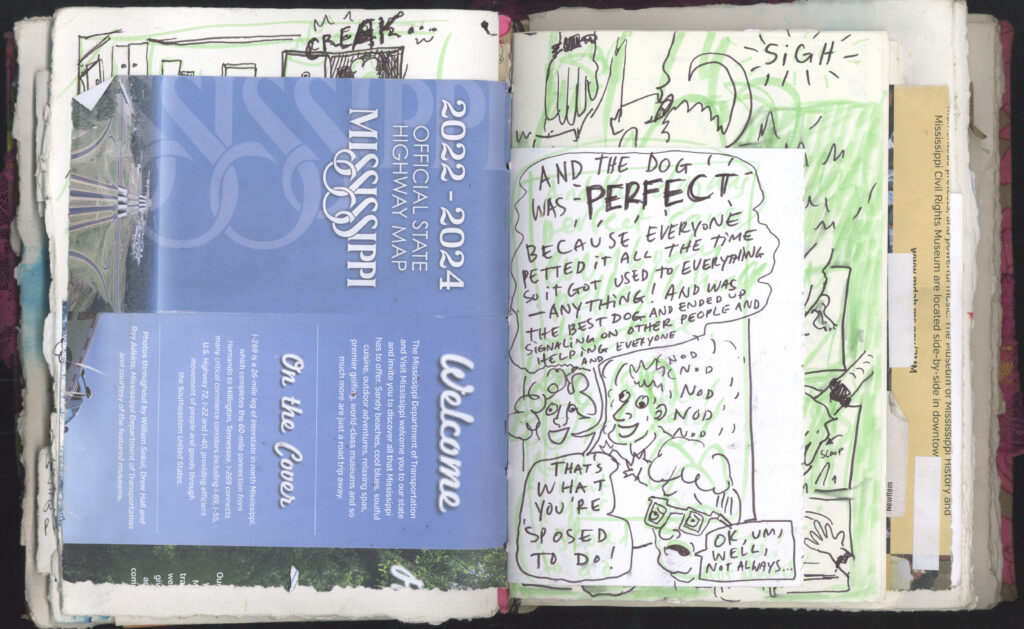 CREAK...
2022 - 2024
OFFICIAL STATE
HIGHWAY MAP
MISSISSIPPI
Welcome
The Mississippi Department of Transportation
and Visit Mississippi welcome you to our state
and invite you to discover all that Mississippi
has to offer. Sandy beaches, cool blues, soulful
cuisine, outdoor adventures, relaxing spas,
premier golfing, world-class museums and so
much more are just a road trip away.
On the Cover
I-269 is a 26-mile leg of interstate in north Mississippi,
which completes the 60-mile connection from
Hernando to Millington, Tennessee. I-269 connects
many critical commerce corridors including I-69, I-55,
U.S. Highway 72, I-22 and I-40, providing efficient
movement of people and goods through
the Southeastern United States.
Photos throughout by William Sekul, Drew Hall and
Roy Adkins, Mississippi Department of Transportation
and courtesy of the featured museums.
SIGH
AND THE DOG
WAS PERFECT
BECAUSE EVERYONE
PETTED iT ALL THE TiME
SO iT GOT USED TO EVERYTHING
— ANYTHING! AND WAS
THE BEST DOG AND ENDED UP
SIGNALING ON OTHER PEOPLE AND
HELPING EVERYONE
AND
NOD
NOD
NOD
NOD
THATS
WHAT
YOU'RE
'SPOSED
TO DO!
OK, UM,
WELL,
NOT ALWAYS...
SCOOT
Museum of Mississippi History and
Mississippi Civil Rights Museum are located side-by-side in downtow
NewItem